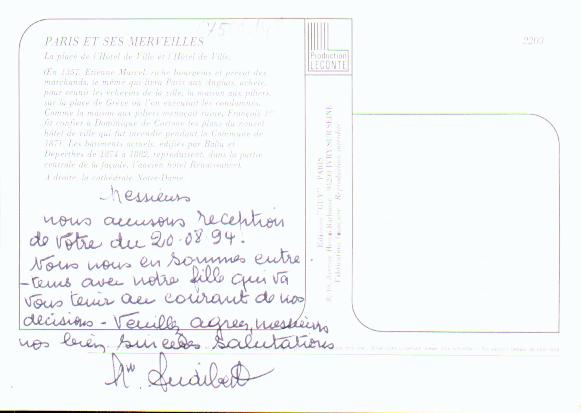 PARIS ET SES MERVEILLES
La place de l'Hôtel de Ville et l'Hôtel de Ville.
(En 1357, Etienne Marcel, riche bourgeois et prévôt des
marchands, le même qui livra Paris aux Anglais, achète,
pour réunir les échevins de la ville, la maison aux piliers,
sur la place de Grève où l'on exécutait les condamnés.
Comme la maison aux piliers menaçait ruine, François 1er
fit confier à Dominique de Cortone les plans du nouvel
hôtel de ville qui fut incendié pendant la Commune de
1871. Les bâtiments actuels, édifiés par Ballu et
Deperthes de 1874 à 1882, reproduisent, dans la partie
centrale de la façade, l'ancien hôtel Renaissance).
A droite, la cathédrale Notre-Dame.
Production
LECONTE
2200
Editions "GUY" PARIS
Messieurs
nous accusons reception
de vôtre du 20.08.94.
Nous nous en sommes entre
-tenus avec notre fille qui va
vous tenir au courant de nos
décisions - Veuillez agréer, messieurs
nos biens sincères salutations